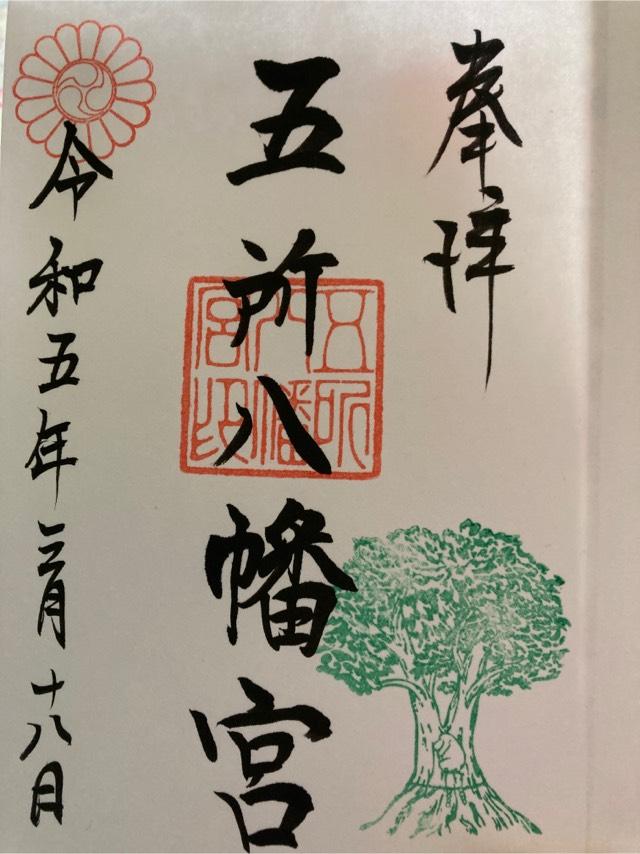 奉拝
五所八幡宮
五所八幡宮印
令和五年三月十八日